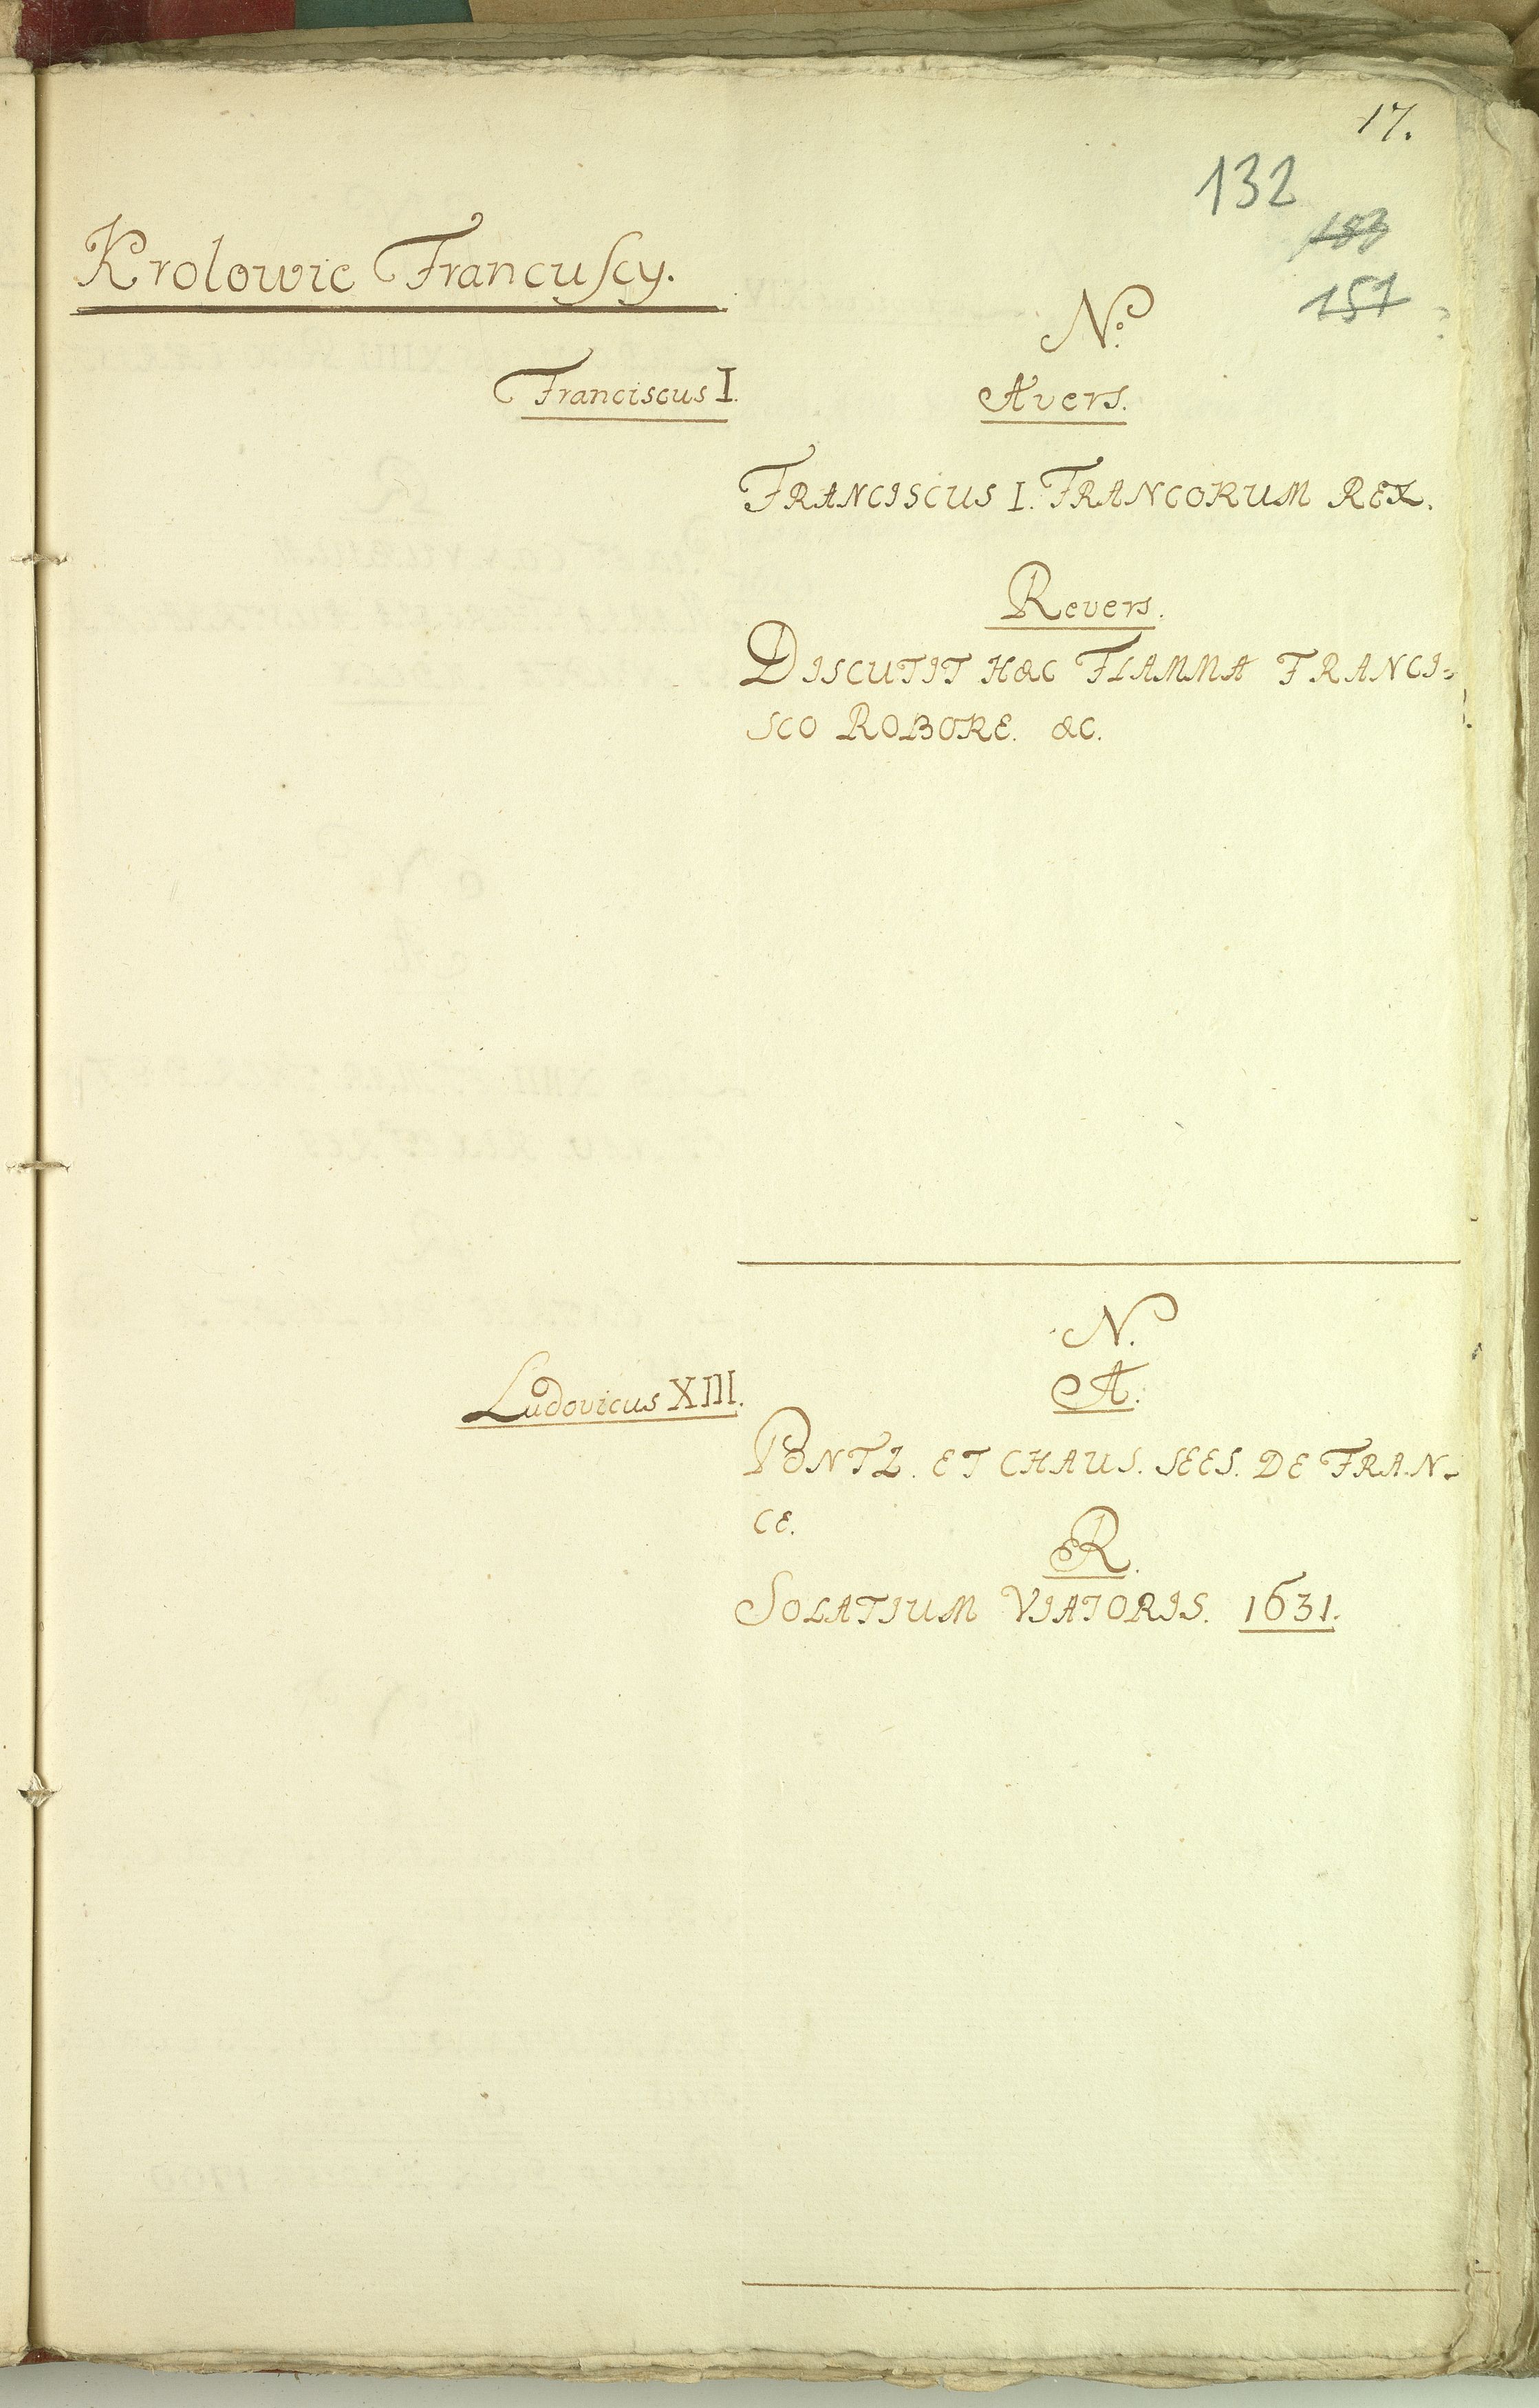 17.
132
151
Krolowie Francuscy.
N.o
Franciscus I.
Avers.
FRANCISCUS I. FRANCORUM REX.
Revers.
DISCUTIT HAC FLAMMA FRANCI=
SCO ROBORE. &C.
N.
Ludovicus XIII.
A.
PONTZ. ET CHAUS. SEES. DE FRAN=
CE.
R.
SOLATIUM VIATORIS. 1631.